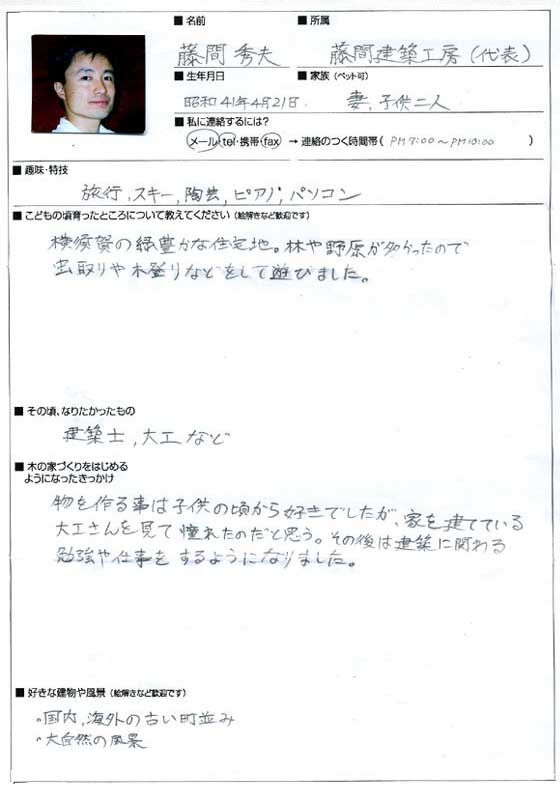 ■ 名前
藤間 秀夫
■ 所属
藤間建築工房(代表)
■ 生年月日
昭和41年4月21日.
■ 家族(ペット可)
妻, 子供二人
■ 私に連絡するには?
メール・tel・携帯・fax → 連絡のつく時間帯( PM7:00〜PM10:00 )
■ 趣味・特技
旅行, スキー, 陶芸, ピアノ, パソコン
■ こどもの頃育ったところについて教えてください(絵解きなど歓迎です)
横須賀の緑豊かな住宅地。林や野原が多かったので
虫取りや木登りなどをして遊びました。
■ その頃、なりたかったもの
建築士, 大工など
■ 木の家づくりをはじめる
ようになったきっかけ
物を作る事は子供の頃から好きでしたが、家を建てている
大工さんを見て憧れたのだと思う。その後は建築に関わる
勉強や仕事をするようになりました。
■ 好きな建物や風景(絵解きなど歓迎です)
◦国内, 海外の古い町並み
◦大自然の風景